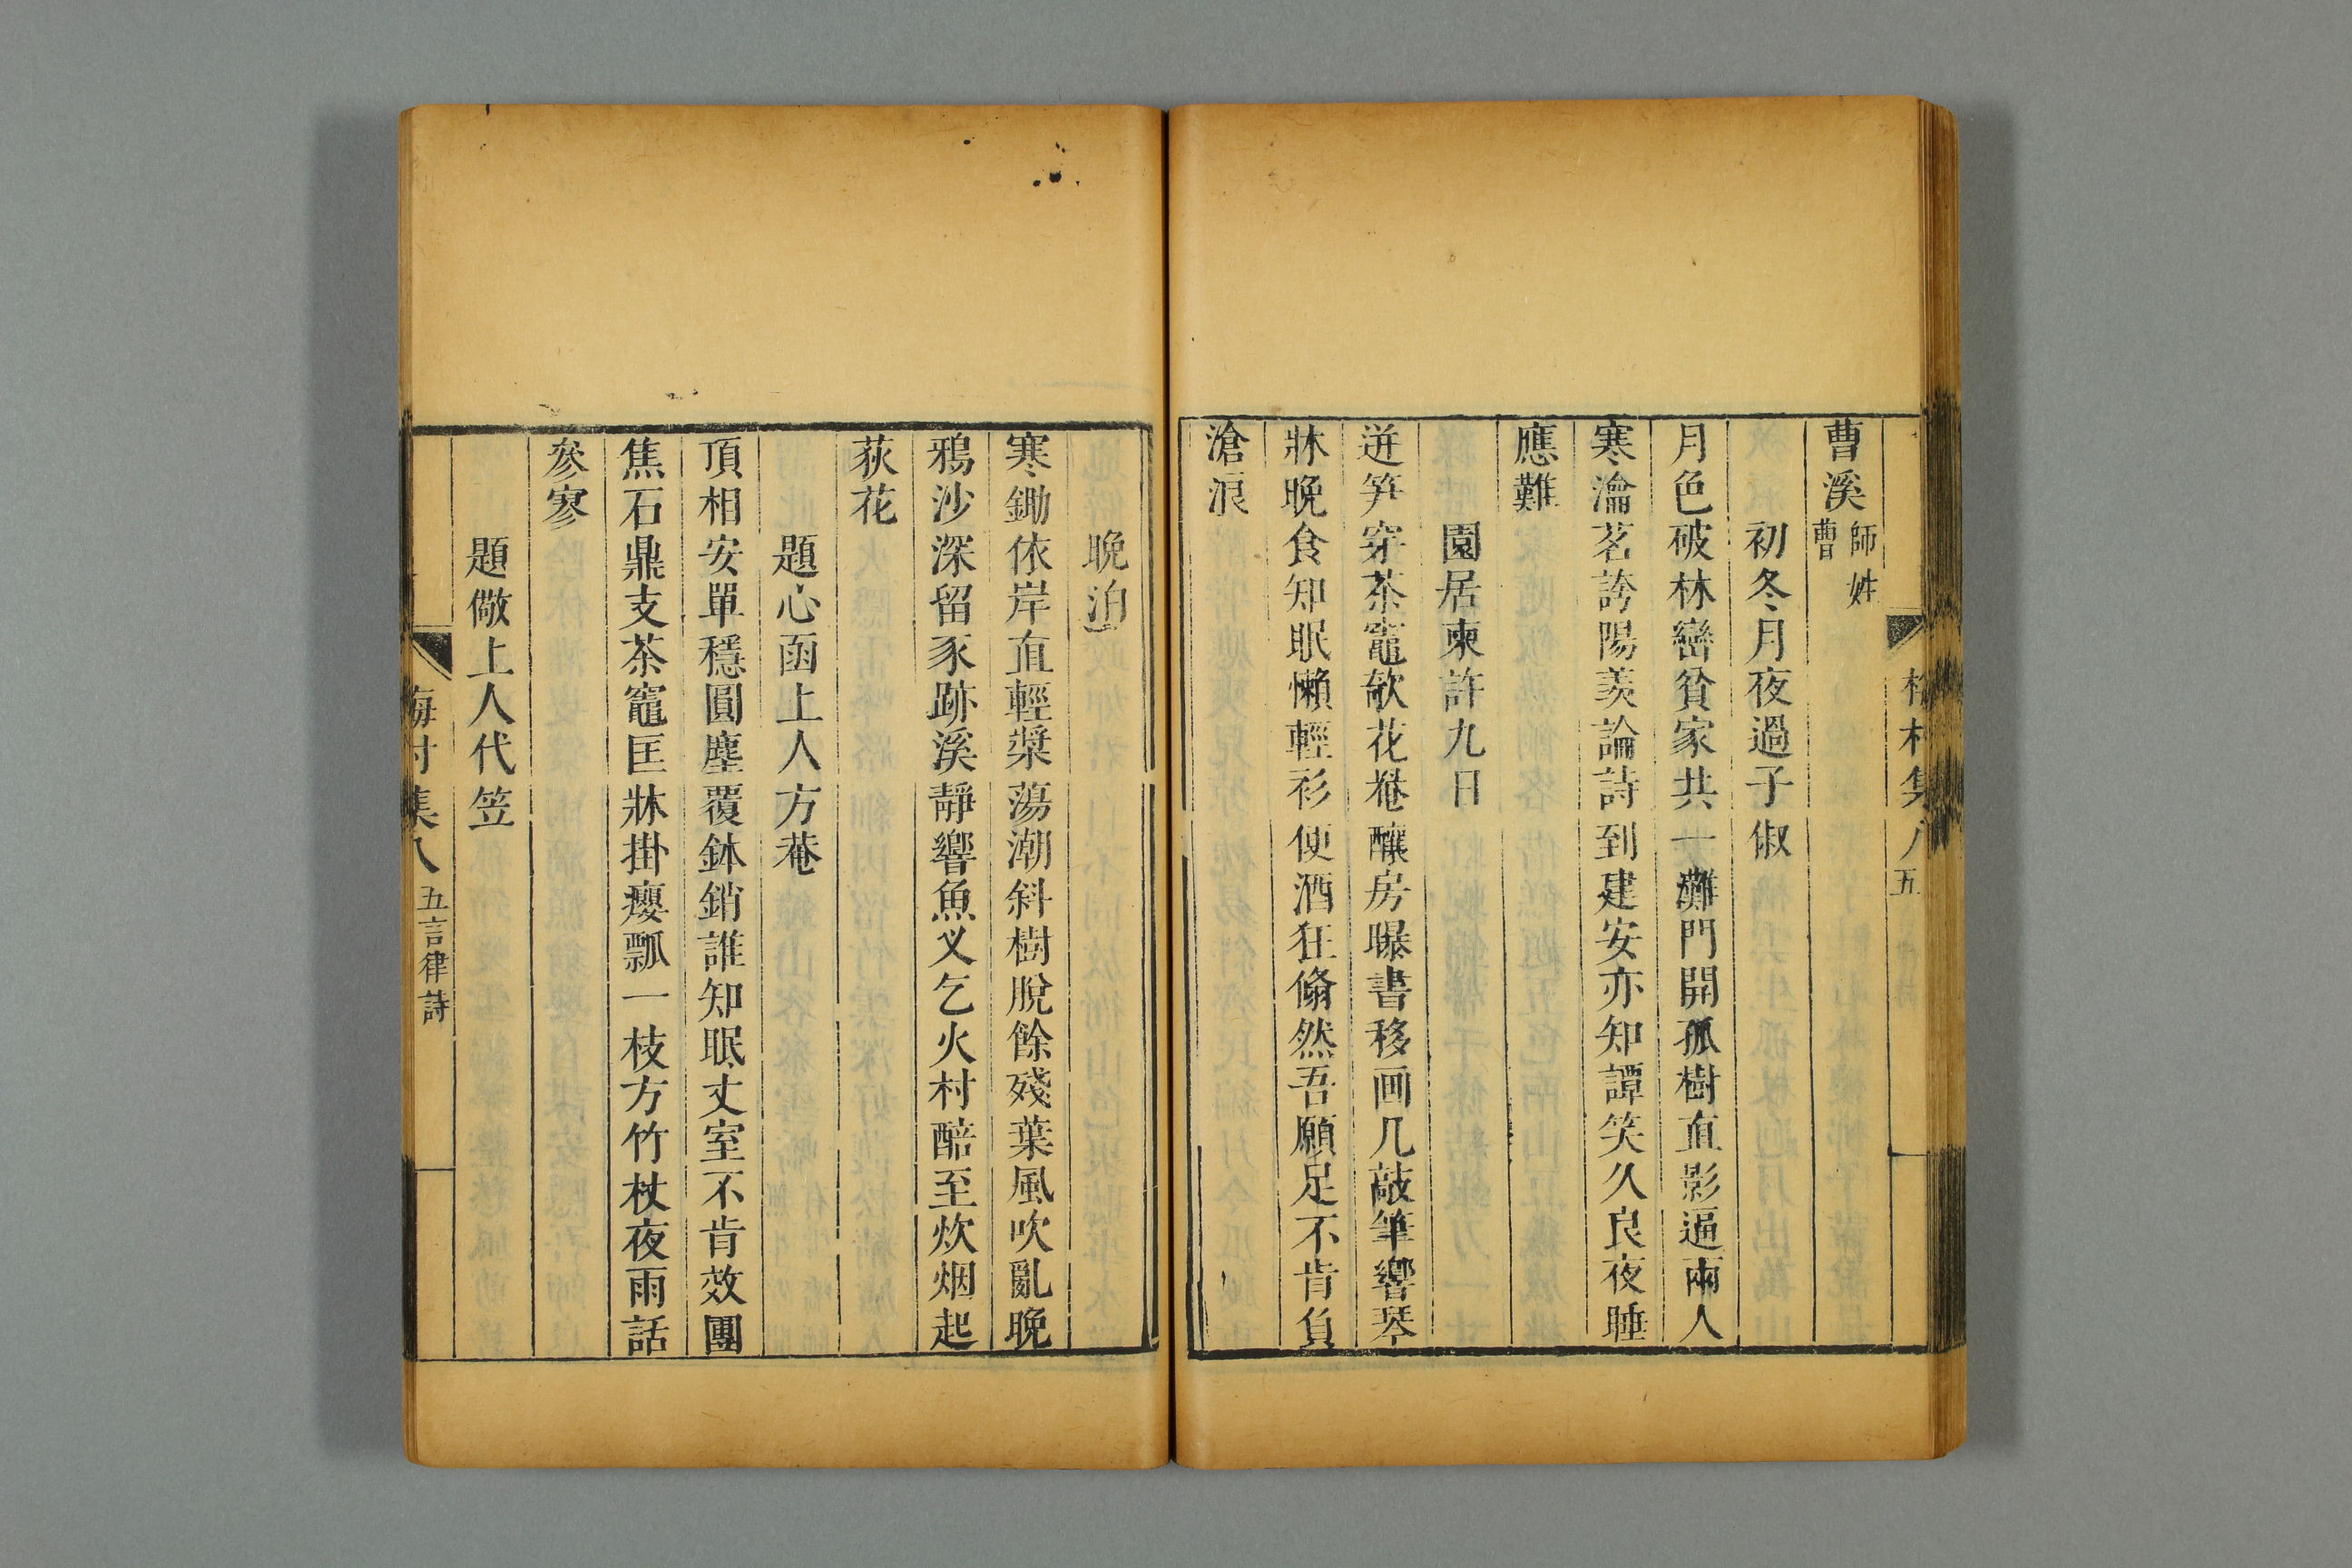 曹溪師姓曹
初冬月夜過子俶
月色破林巒貧家共一灘門開孤樹直影逼兩人
寒瀹茗誇陽羨論詩到建安亦知譚笑久良夜睡
應難
園居柬許九日
迸笋穿茶竈欹花罨釀房曝書移画几敲筆響琴
牀晚食知眠懶輕衫便酒狂翛然吾願足不肯負
滄浪
晚泊
寒鋤依岸直輕槳蕩潮斜樹脫餘殘葉風吹亂晚
鴉沙深留豕跡溪靜響魚义乞火村醅至炊烟起
荻花
題心函上人方菴
頂相安單穩圓塵覆鉢銷誰知眠丈室不肯效團
焦石鼎支茶竈匡牀掛癭瓢一枝方竹杖夜雨話
參寥
題儆上人代笠
梅村集八 五言律詩